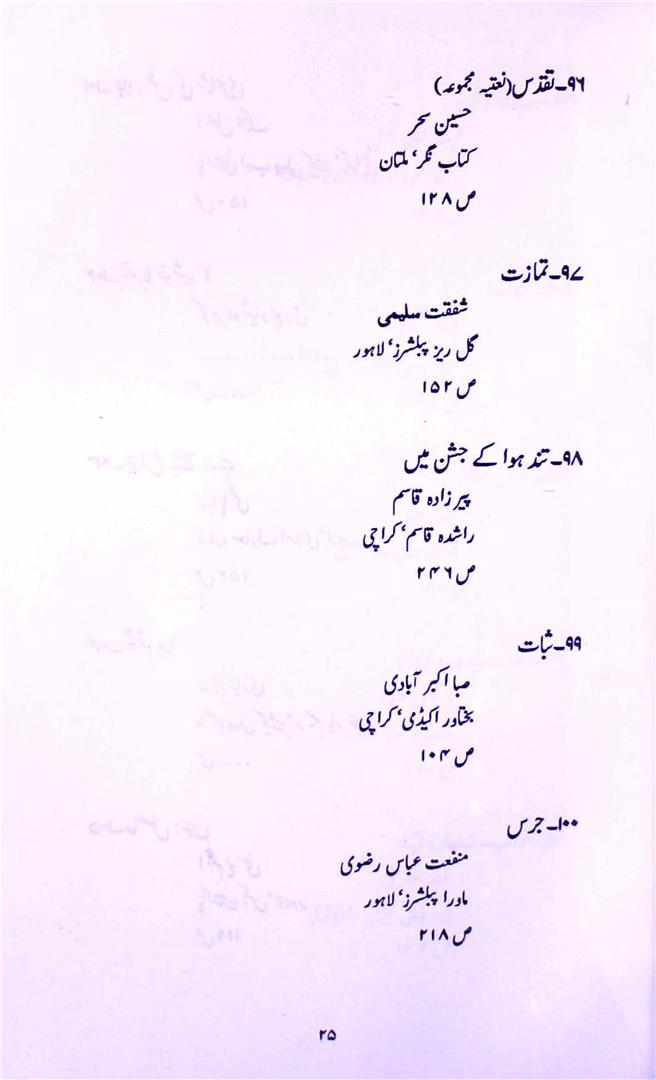 ۹۶۔ تقدس (نعتیہ مجموعہ)
حسین سحر
کتاب نگر، ملتان
ص ۱۲۸
۹۷۔ تمازت
شفقت سلیمی
گل ریز پبلشرز، لاہور
ص ۱۵۲
۹۸۔ تند ہوا کے جشن میں
پیر زادہ قاسم
راشدہ قاسم، کراچی
ص ۲۴۶
۹۹۔ ثبات
صبا اکبر آبادی
بختاور اکیڈمی، کراچی
ص ۱۰۴
۱۰۰۔ جرس
منفعت عباس رضوی
ماورا پبلشرز، لاہور
ص ۲۱۸
۲۵